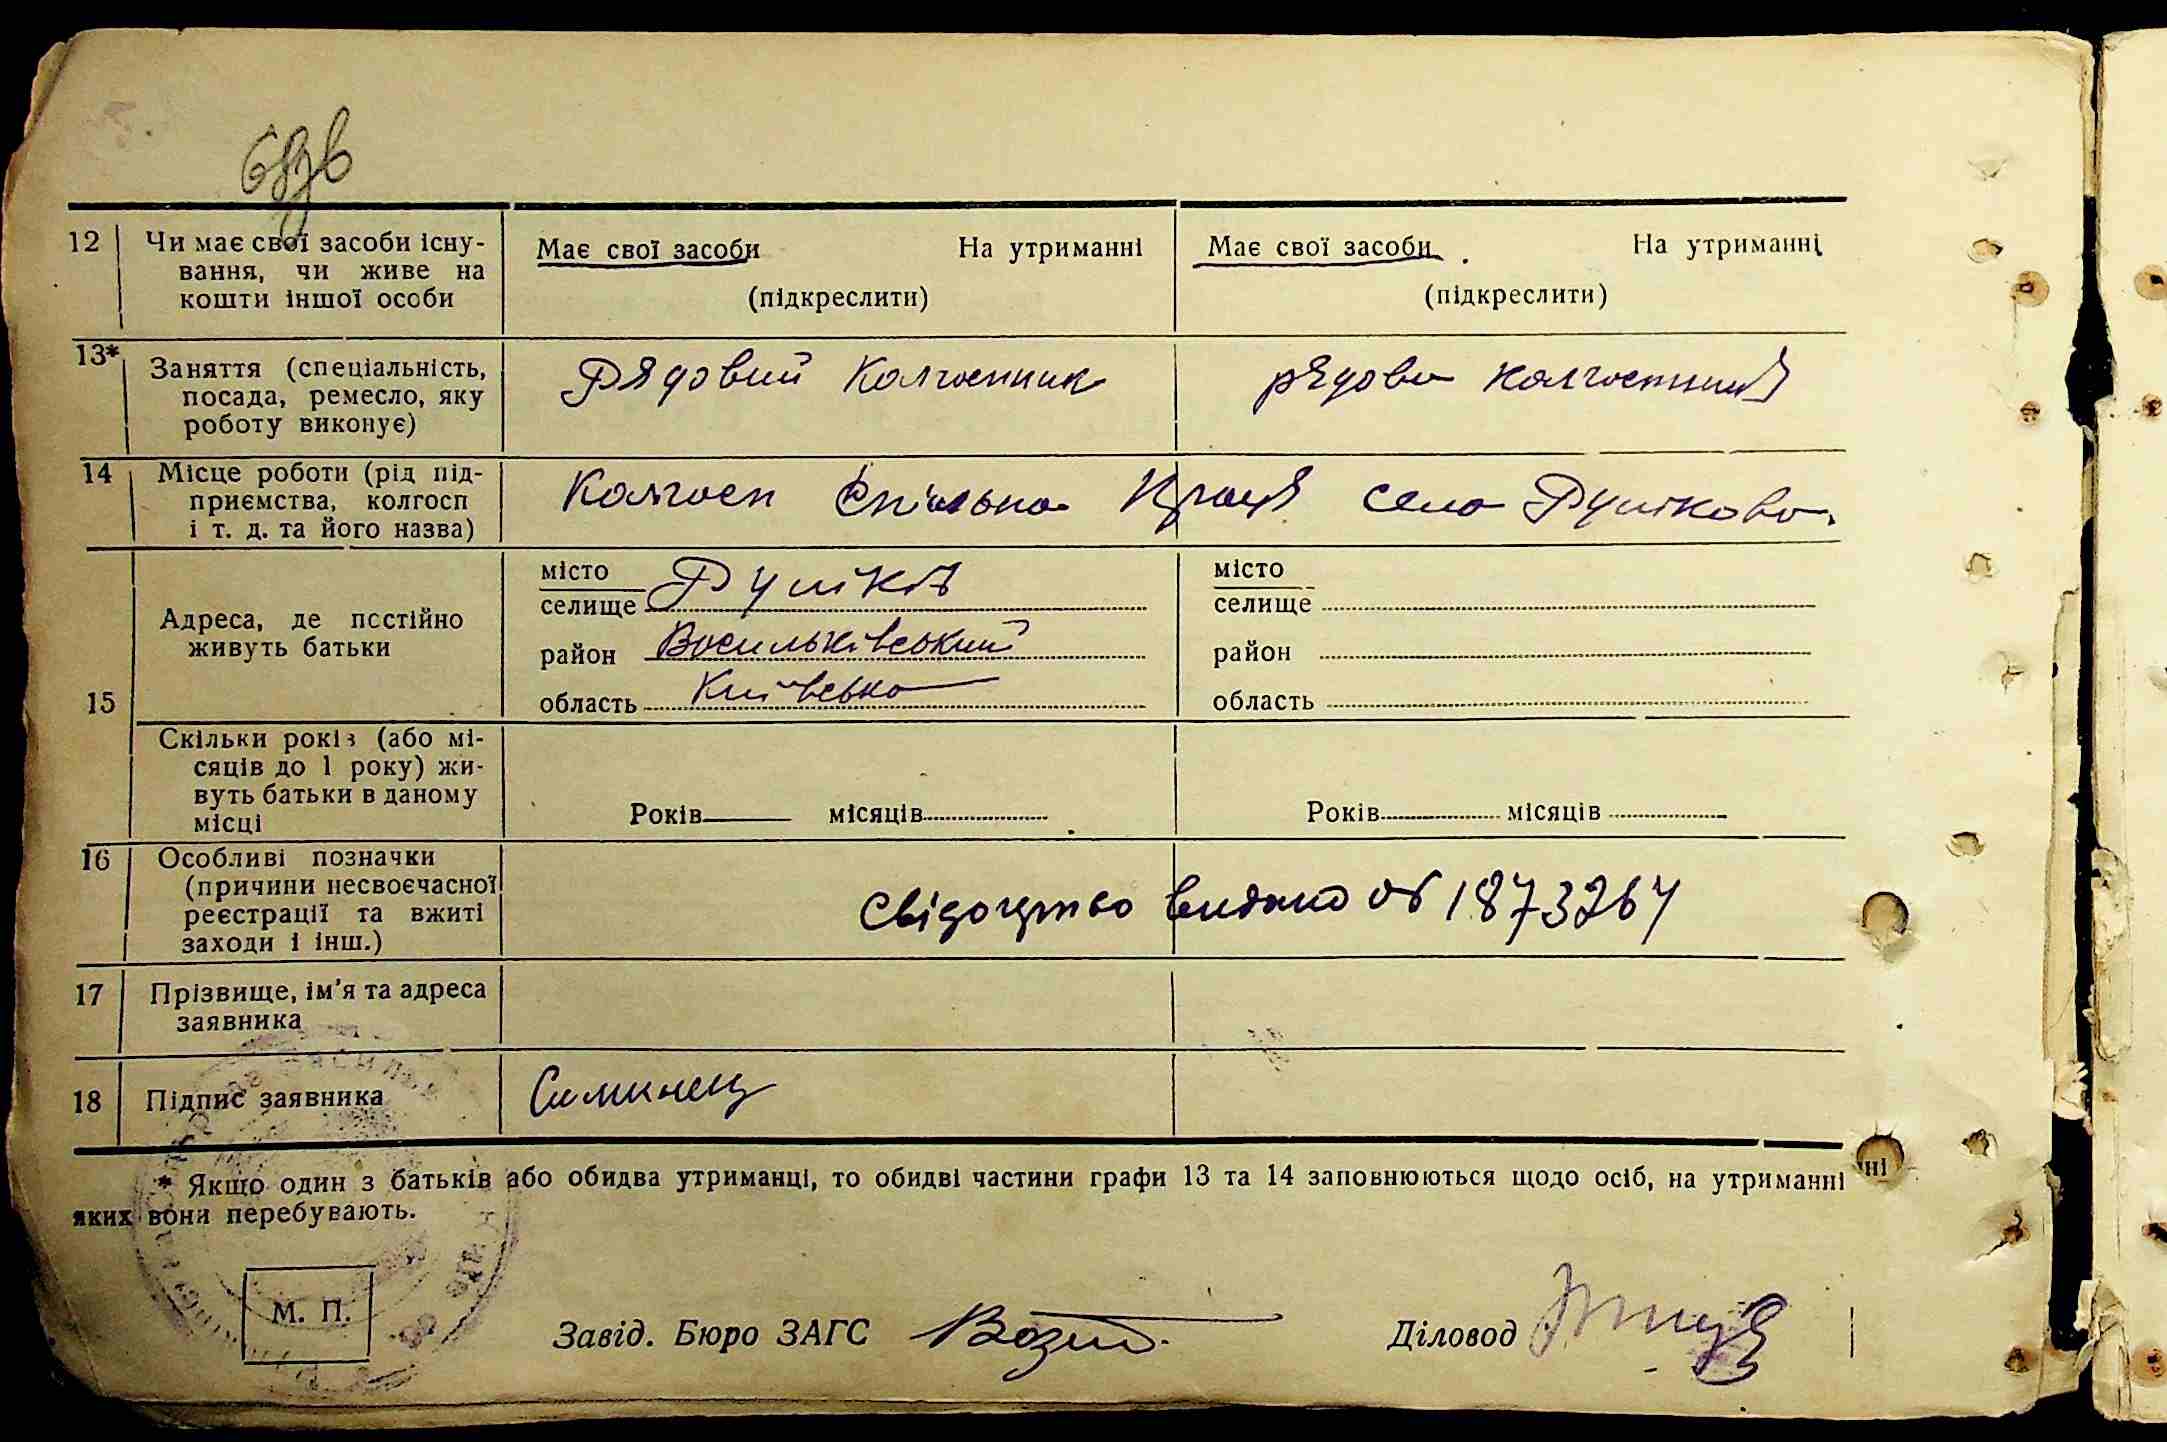 12 Чи має свої засоби існу- Має свої засоби На утриманні Має свої засоби На утриманні
вання, чи живе на
кошти іншої особи (підкреслити) (підкреслити)
13* Заняття (спеціальність, Рядовий Колгоспник рядова колгоспниця
посада, ремесло, яку
роботу виконує)
14 Місце роботи (рід під- Колгосп Спільна Праця село
приємства, колгосп
і т. д. та його назва)
15 Адреса, де постійно
живуть батьки
місто місто
селище селище
район Васильківський район
область Київська область
Скільки років (або мі-
сяців до 1 року) жи-
вуть батьки в даному
місці Років місяців Років місяців
16 Особливі позначки
(причини несвоєчасної
реєстрації та вжиті Свідоцтво видано об 1873267
заходи і інш.)
17 Прізвище, ім'я та адреса
заявника
18 Підпис заявника
* Якщо один з батьків або обидва утриманці, то обидві частини графи 13 та 14 заповнюються щодо осіб, на утриманні
яких вони перебувають.
М. П.
Завід. Бюро ЗАГС Діловод